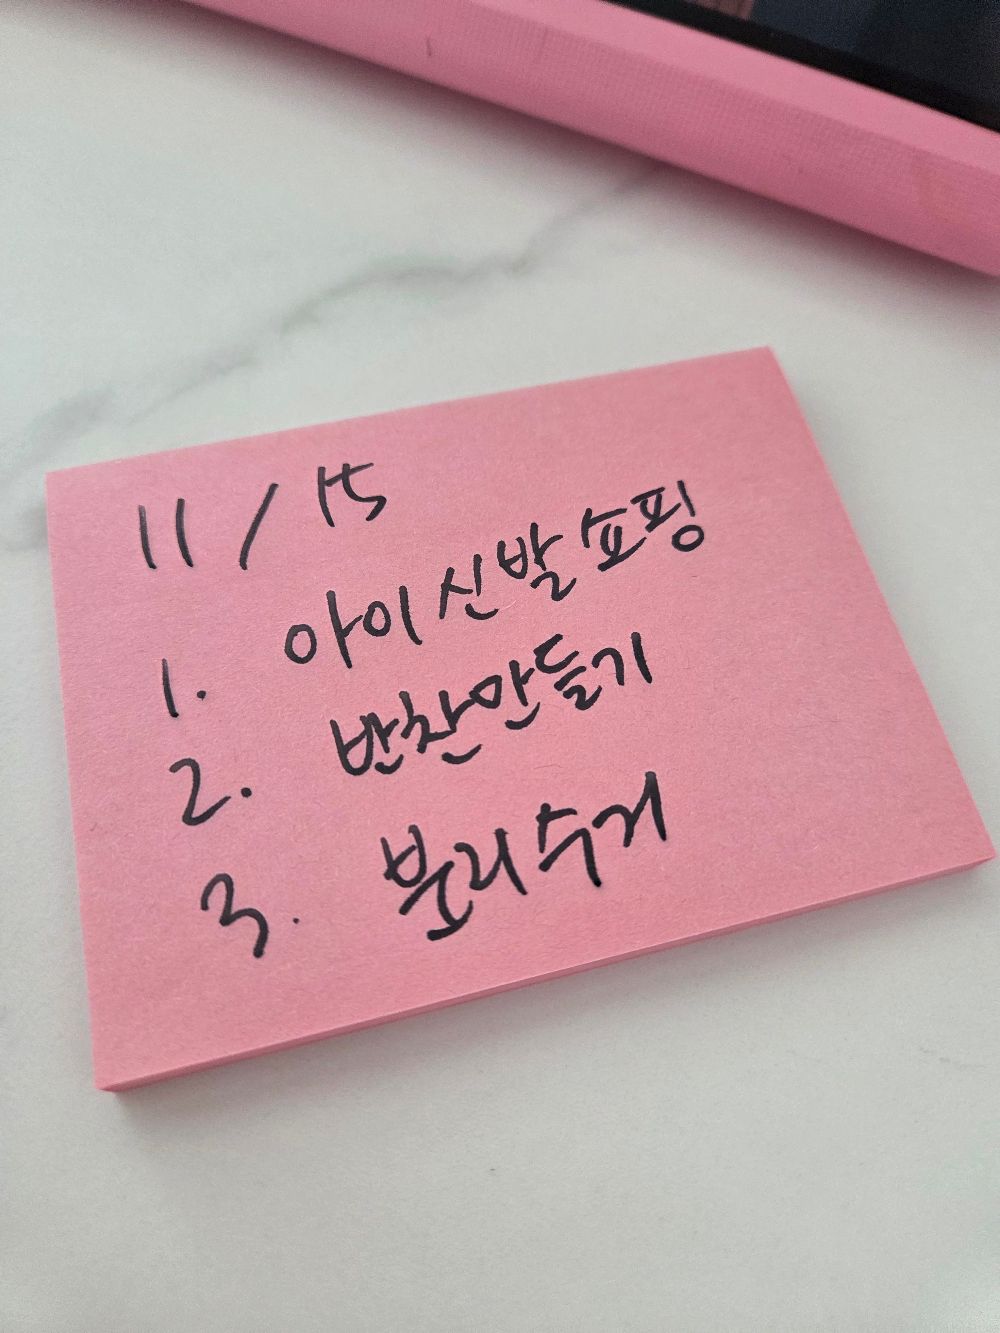 11/15
1. 아이 신발 쇼핑
2. 반찬만들기
3. 분리수거